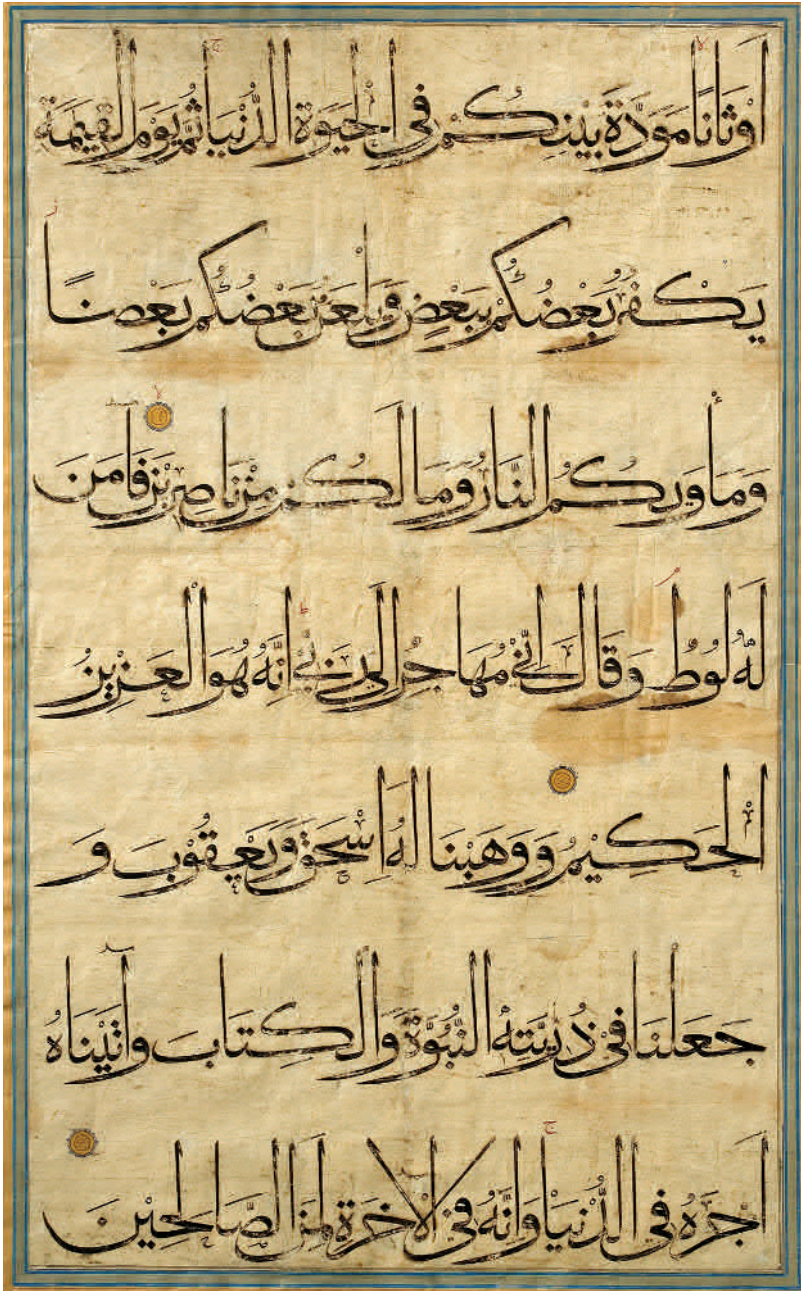 اَوْثَانًا مَوَدَّةَ بَيْنِكُمْ فِي الْحَيٰوةِ الدُّنْيَا ثُمَّ يَوْمَ الْقِيٰمَةِ
يَكْفُرُ بَعْضُكُمْ بِبَعْضٍ وَيَلْعَنُ بَعْضُكُمْ بَعْضًا
وَمَأْوٰىكُمُ النَّارُ وَمَا لَكُمْ مِنْ نَاصِرِيْنَ فَاٰمَنَ
لَهُ لُوْطٌ وَقَالَ اِنِّيْ مُهَاجِرٌ اِلٰى رَبِّيْ اِنَّهُ هُوَ الْعَزِيْزُ
الْحَكِيْمُ وَوَهَبْنَا لَهُ اِسْحٰقَ وَيَعْقُوْبَ وَ
جَعَلْنَا فِيْ ذُرِّيَّتِهِ النُّبُوَّةَ وَالْكِتَابَ وَاٰتَيْنَاهُ
اَجْرَهُ فِي الدُّنْيَا وَاِنَّهُ فِي الْاٰخِرَةِ لَمِنَ الصَّالِحِيْنَ